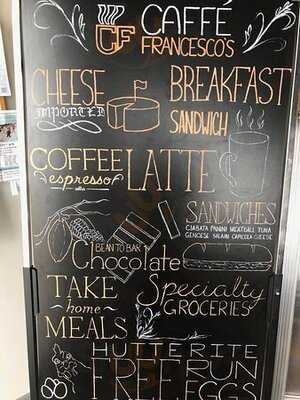 CF CAFFÉ
FRANCESCO'S
CHEESE
IMPORTED
BREAKFAST
SANDWICH
COFFEE
espresso
LATTE
SANDWICHES
CIABATA PANINI MEATBALL TUNA
GENOESE SALAMI CAPICOLA CHEESE
BEAN TO BAR
Chocolate
TAKE
home
MEALS
Specialty
GROCERIES
HUTTERITE
FREE RUN
EGGS